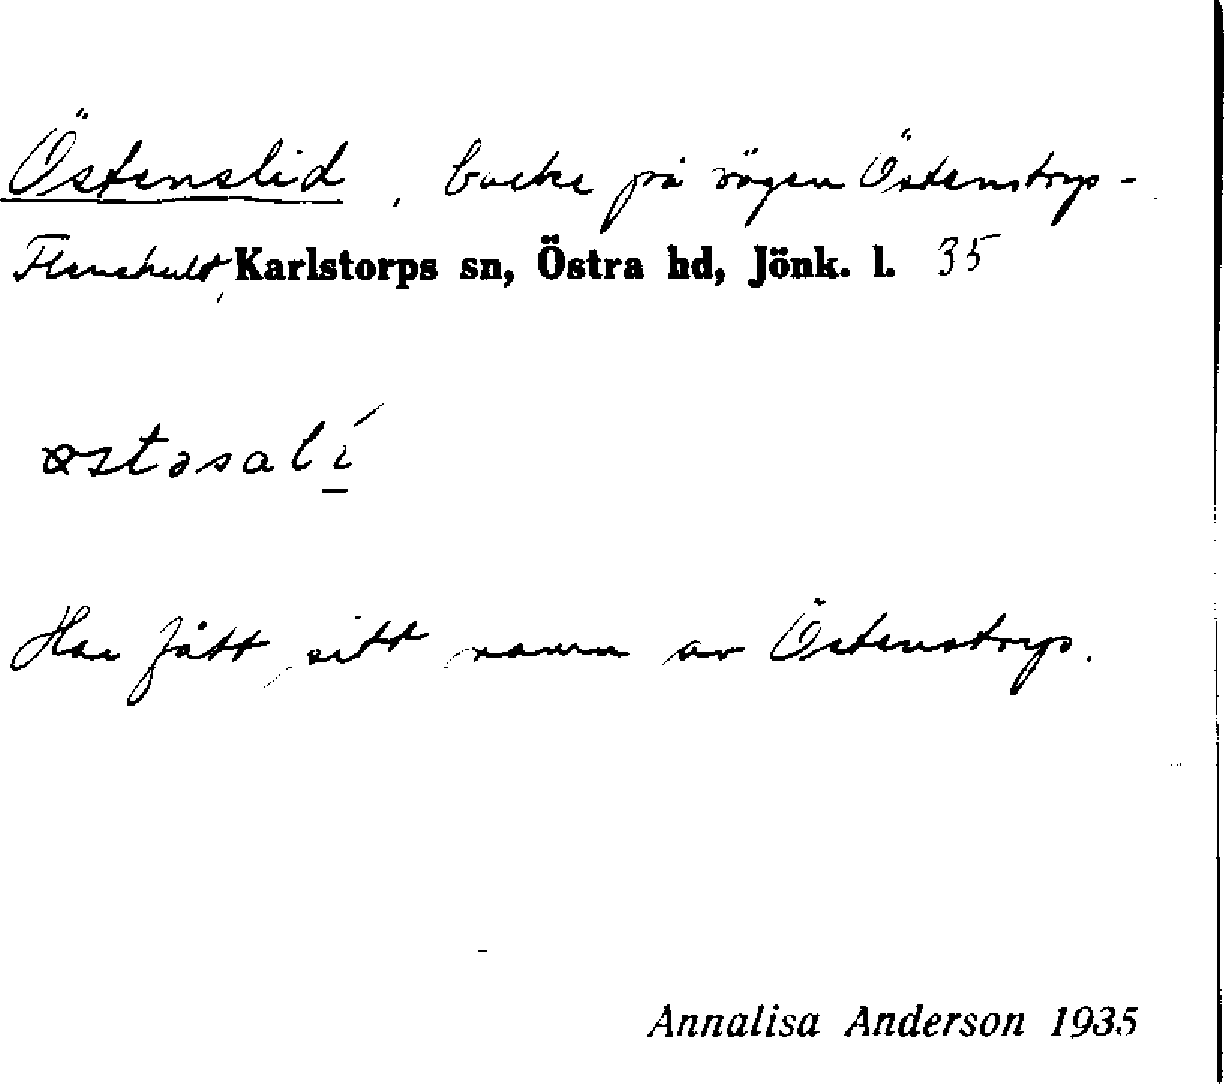 Östenslid, backe på vägen Östenstorp-
Flenshult, Karlstorps sn, Östra hd, Jönk. l. 35
østəsalí
Har fått sitt namn av Östenstorp.
Annalisa Anderson 1935